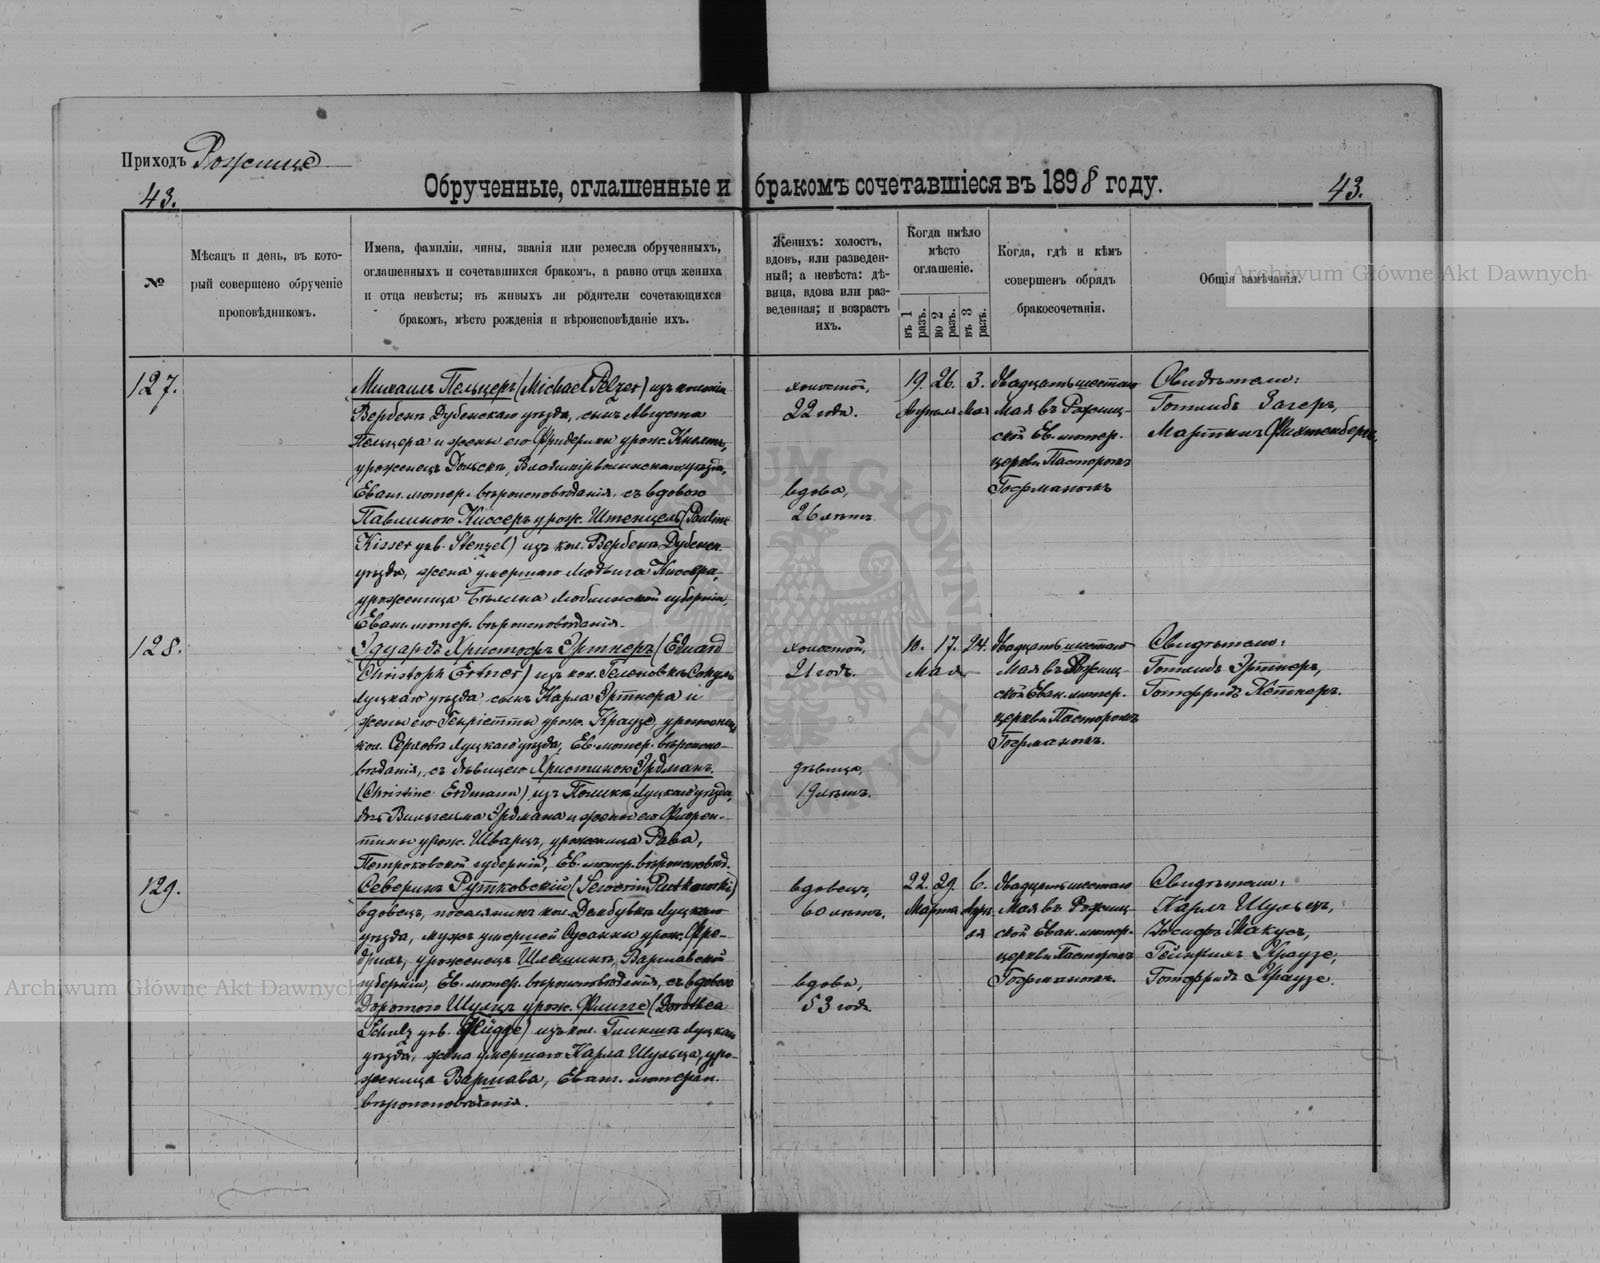 Приходъ Рожище
43.
Обрученные, оглашенные и бракомъ сочетавшіеся въ 1898 году.
43.
№
Мѣсяцъ и день, въ кото-
рый совершено обрученіе
проповѣдникомъ.
Имена, фамиліи, чины, званія или ремесла обрученныхъ,
оглашенныхъ и сочетавшихся бракомъ, а равно отца жениха
и отца невѣсты; въ живыхъ ли родители сочетающихся
бракомъ, мѣсто рожденія и вѣроисповѣданіе ихъ.
Женихъ: холостъ,
вдовъ, или разведен-
ный; а невѣста: дѣ-
вица, вдова или раз-
веденная; и возрастъ
ихъ.
Когда имѣло
мѣсто
оглашеніе.
въ 1 разъ.
во 2 разъ.
въ 3 разъ.
Когда, гдѣ и кѣмъ
совершенъ обрядъ
бракосочетанія.
Общія замѣчанія.
Archiwum Główne Akt Dawnych
127.
Михаилъ Пельцеръ (Michael Pelzer) изъ колоніи
Вербенъ Дубенскаго уѣзда, сынъ Августа
Пельцера и жены его Фридерики урож.
уроженецъ Владимірволынскаго уѣзда,
Еванг. лютер. вѣроисповѣданія, съ вдовою
Павлиною Киссеръ урож. Штенцель (Pauline
Kisser geb. Stenzel) изъ кол. Вербенъ Дубенск.
уѣзда, жена умершаго Людвига Киссера,
уроженица Люблинской губерніи,
Еванг. лютер. вѣроисповѣданія.
холостой,
22 года.
вдова,
26 лѣтъ
19. 26. 3.
Апрѣля Мая
Двадцать шестаго
Мая въ Рожищ-
ской Ев. лютер.
церкви Пасторомъ
Гофманомъ
Свидѣтели:
Готлибъ Загеръ,
Мартинъ Фихтенбергъ.
128.
Эдуардъ Христофъ Эртнеръ (Eduard
Christoph Ertner) изъ кол. Геленовка
Луцкаго уѣзда, сынъ Карла Эртнера и
жены его Генріетты урож. Краузе, уроженецъ
кол. Луцкаго уѣзда, Ев. лютер. вѣроиспо-
вѣданія, съ дѣвицею Христиною Эрдманъ
(Christine Erdmann) изъ Луцкаго уѣзда,
дочь Вильгельма Эрдмана и жены его Флорен-
тины урож. Шварцъ, уроженица Рава,
Петроковской губерніи, Ев. лютер. вѣроисповѣд.
холостой,
21 годъ.
дѣвица,
19 лѣтъ.
10. 17. 24.
Мая
Двадцать шестаго
Мая въ Рожищ-
ской Еван. лютер.
церкви Пасторомъ
Гофманомъ.
Свидѣтели:
Готлибъ Эртнеръ,
Готфридъ Кеттнеръ.
129.
Северинъ Рутковскій (Severin Rutkowski)
вдовецъ, поселянинъ кол. Луцкаго
уѣзда, мужъ умершей Сусанны урож. Фре-
дрихъ, уроженецъ Варшавской
губерніи, Ев. лютер. вѣроисповѣданія, съ вдовою
Доротою Шульцъ урож. Флигге (Dorothea
Schulz geb. Flügge) изъ кол. Луцкаго
уѣзда, жена умершаго Карла Шульца, уро-
женица Варшава, Еванг. лютеран.
вѣроисповѣданія.
вдовецъ,
60 лѣтъ.
вдова,
53 года
22. 29. 6.
Марта Апрѣ
ля
Двадцать шестаго
Мая въ Рожищ-
ской Еван. лютер.
церкви Пасторомъ
Гофманомъ.
Свидѣтели:
Карлъ Шульцъ,
Іосифъ Макусъ,
Гейнрихъ Краузе,
Готфридъ Краузе.
Archiwum Główne Akt Dawnych